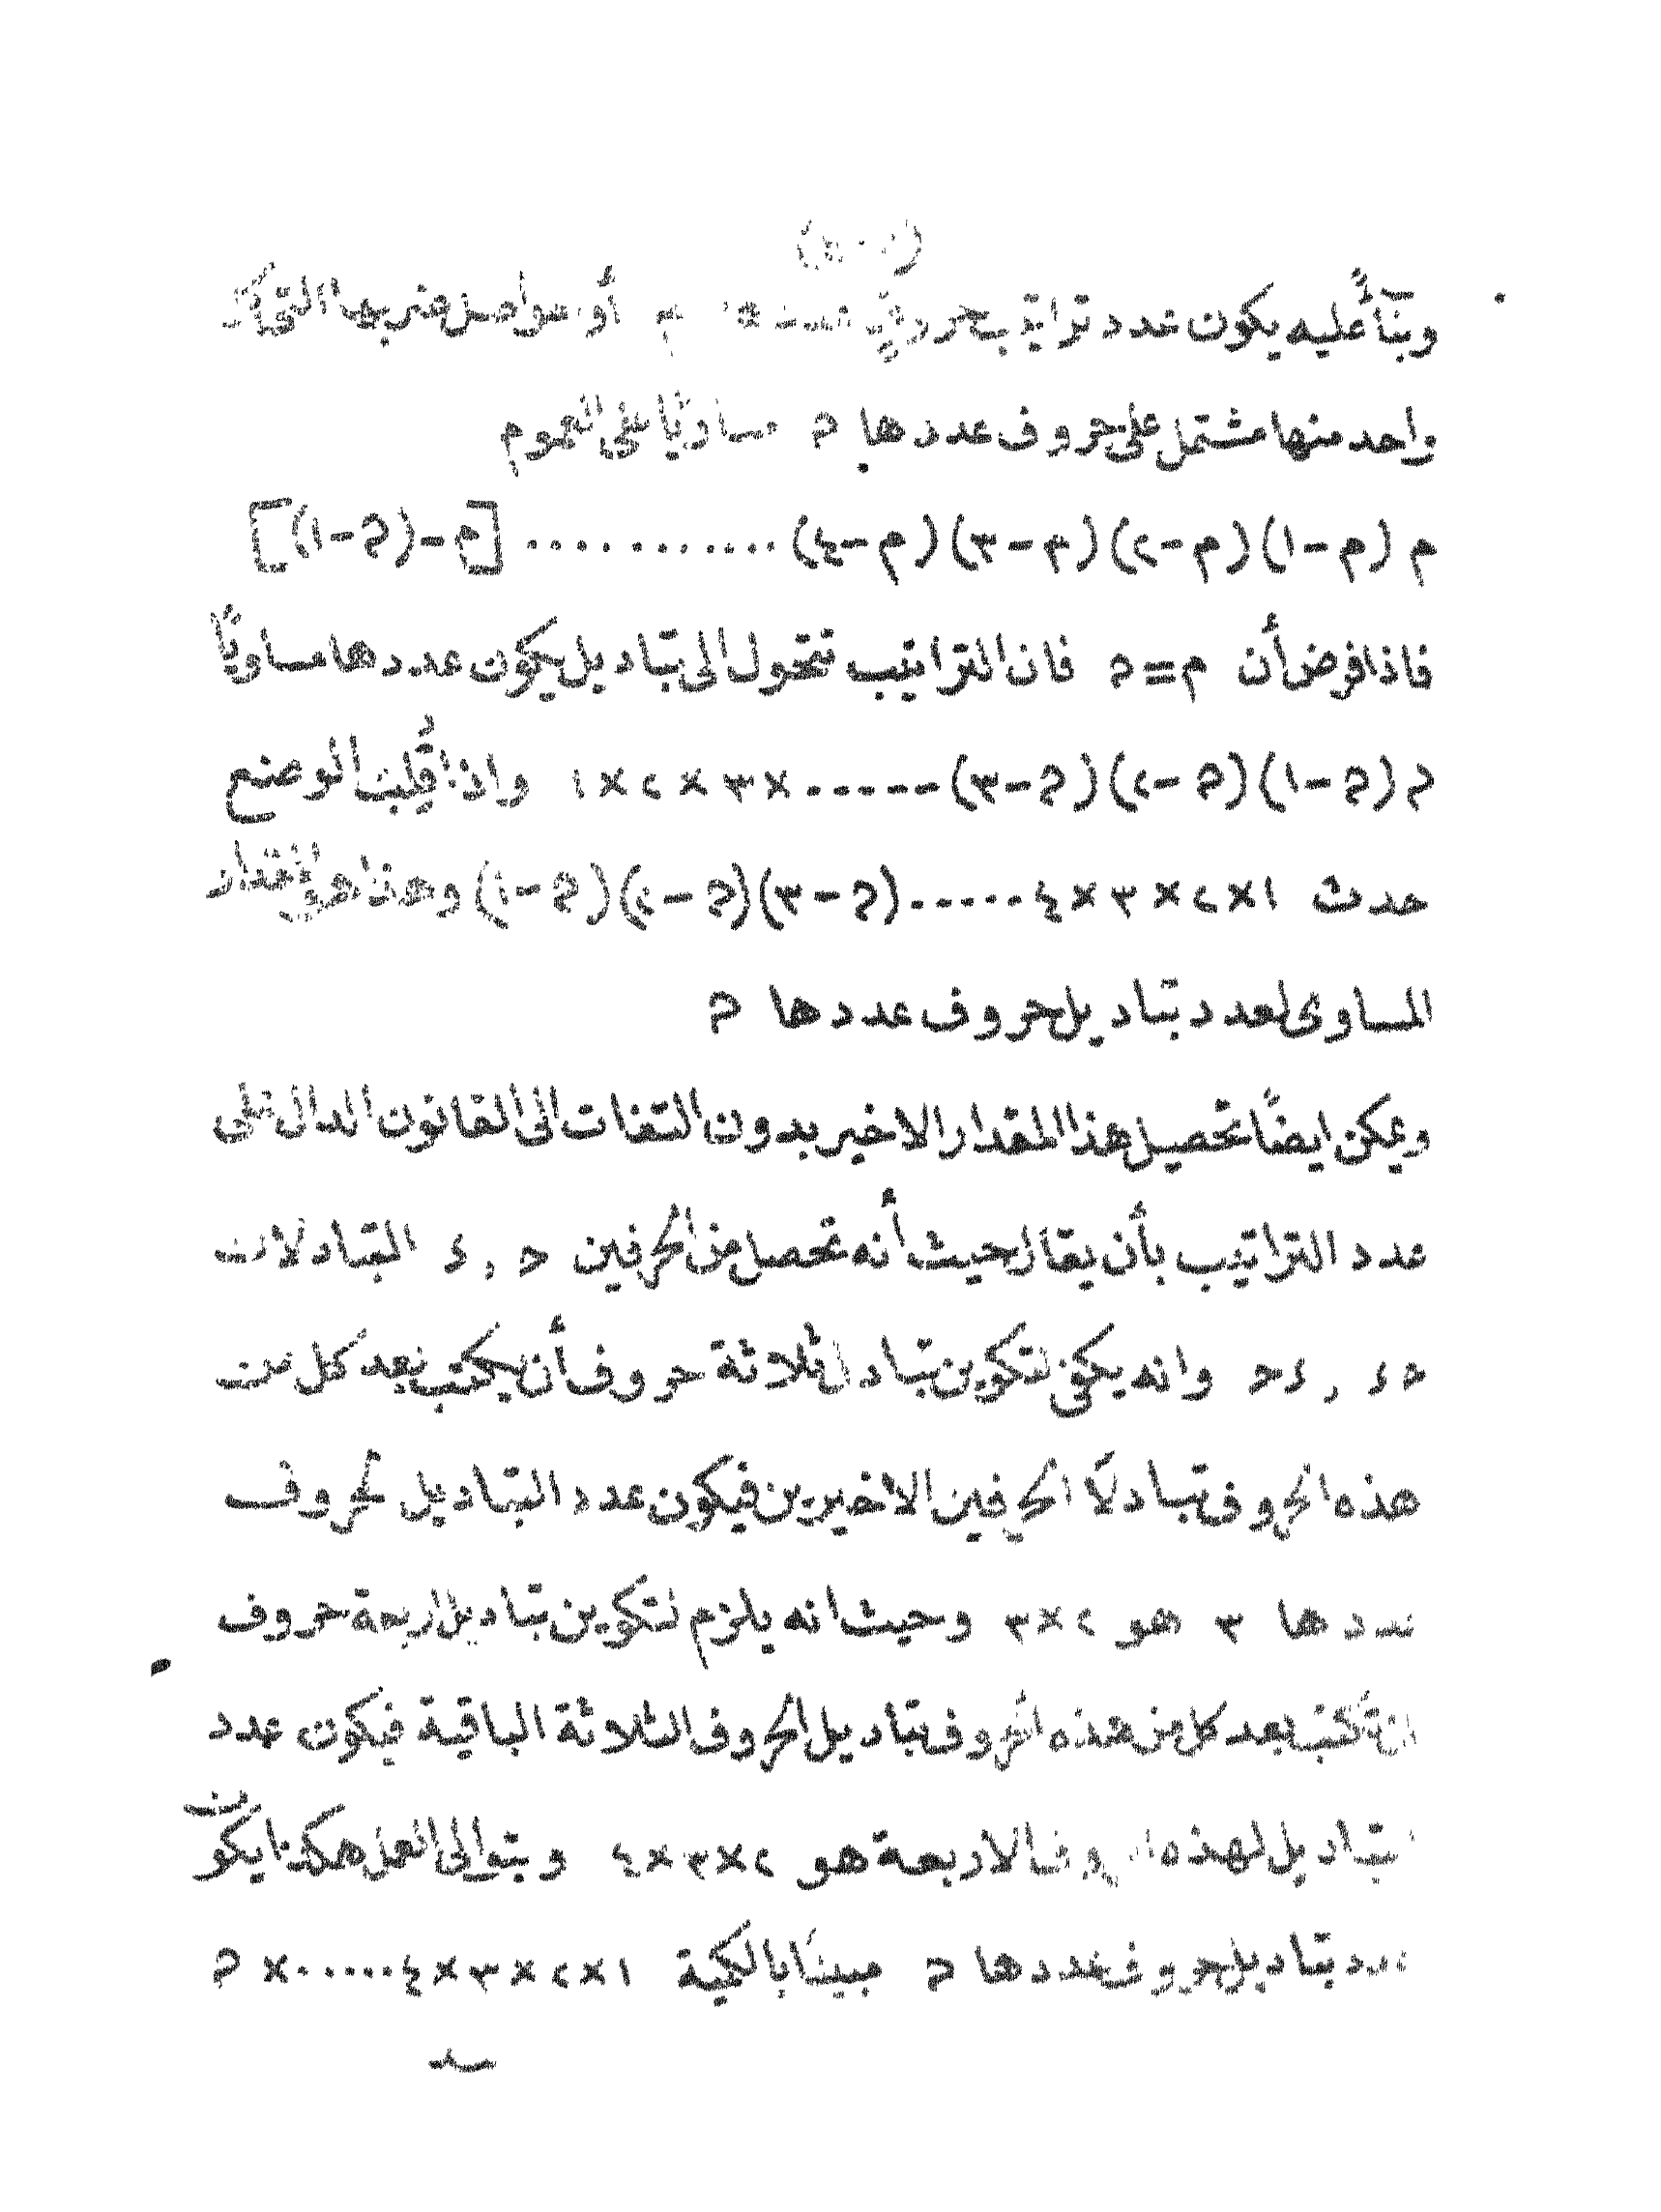 وبنآءً عليه يكون عدد تراتيب حروف عددها م أو حواصل ضربها التى كل
واحد منها مشتمل على حروف عددها ح مساويًا على العموم
م (م-١)(م-٢)(م-٣)(م-٤)...........[م-(ح-١)]
فاذا فرض أن م=ح فان التراتيب تتحول الى تباديل يكون عددها مساويًا
ح(ح-١)(ح-٢)(ح-٣)-----×٣×٢×١ واذا قُلِبَ الوضع
حدث ١×٢×٣×٤.....(ح-٣)(ح-٢)(ح-١)ح وهذا هو المقدار
المساوى لعدد تباديل حروف عددها ح
ويمكن ايضًا تحصيل هذا المقدار الاخير بدون التفات الى القانون الدال على
عدد التراتيب بأن يقال حيث أنه تحصل من الحرفين ح , ء التبادلات
ح ء , ء ح وانه يكفى لتكوين تبادل ثلاثة حروف أن يكتب بعد كل من
هذه الحروف تبادلَا الحرفين الاخيرين فيكون عدد التباديل لحروف
عددها ٣ هو ٢×٣ وحيث انه يلزم لتكوين تباديل اربعة حروف
ان تكتب بعد كل من هذه الحروف تباديل الحروف الثلاثة الباقية فيكون عدد
التباديل لهذه الحروف الاربعة هو ٢×٣×٤ وبتوالى العمل هكذا يكون
عدد تباديل حروف عددها ح مبينًا بالكمية ١×٢×٣×٤.....×ح